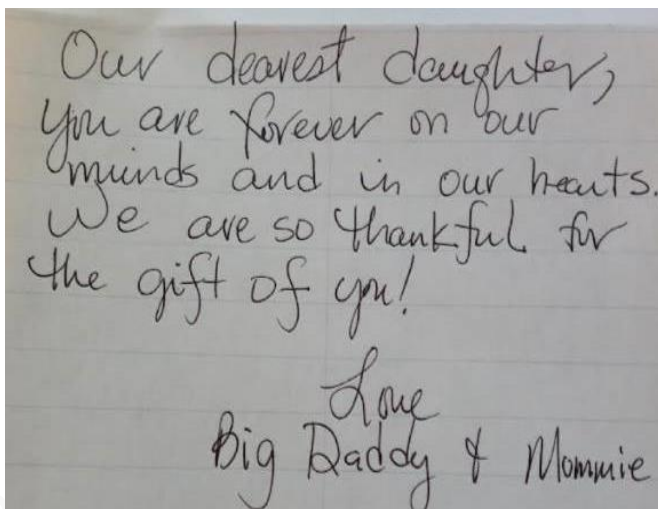 Our dearest daughter,
you are forever on our
minds and in our hearts.
We are so thankful for
the gift of you!
Love
Big Daddy & Mommie